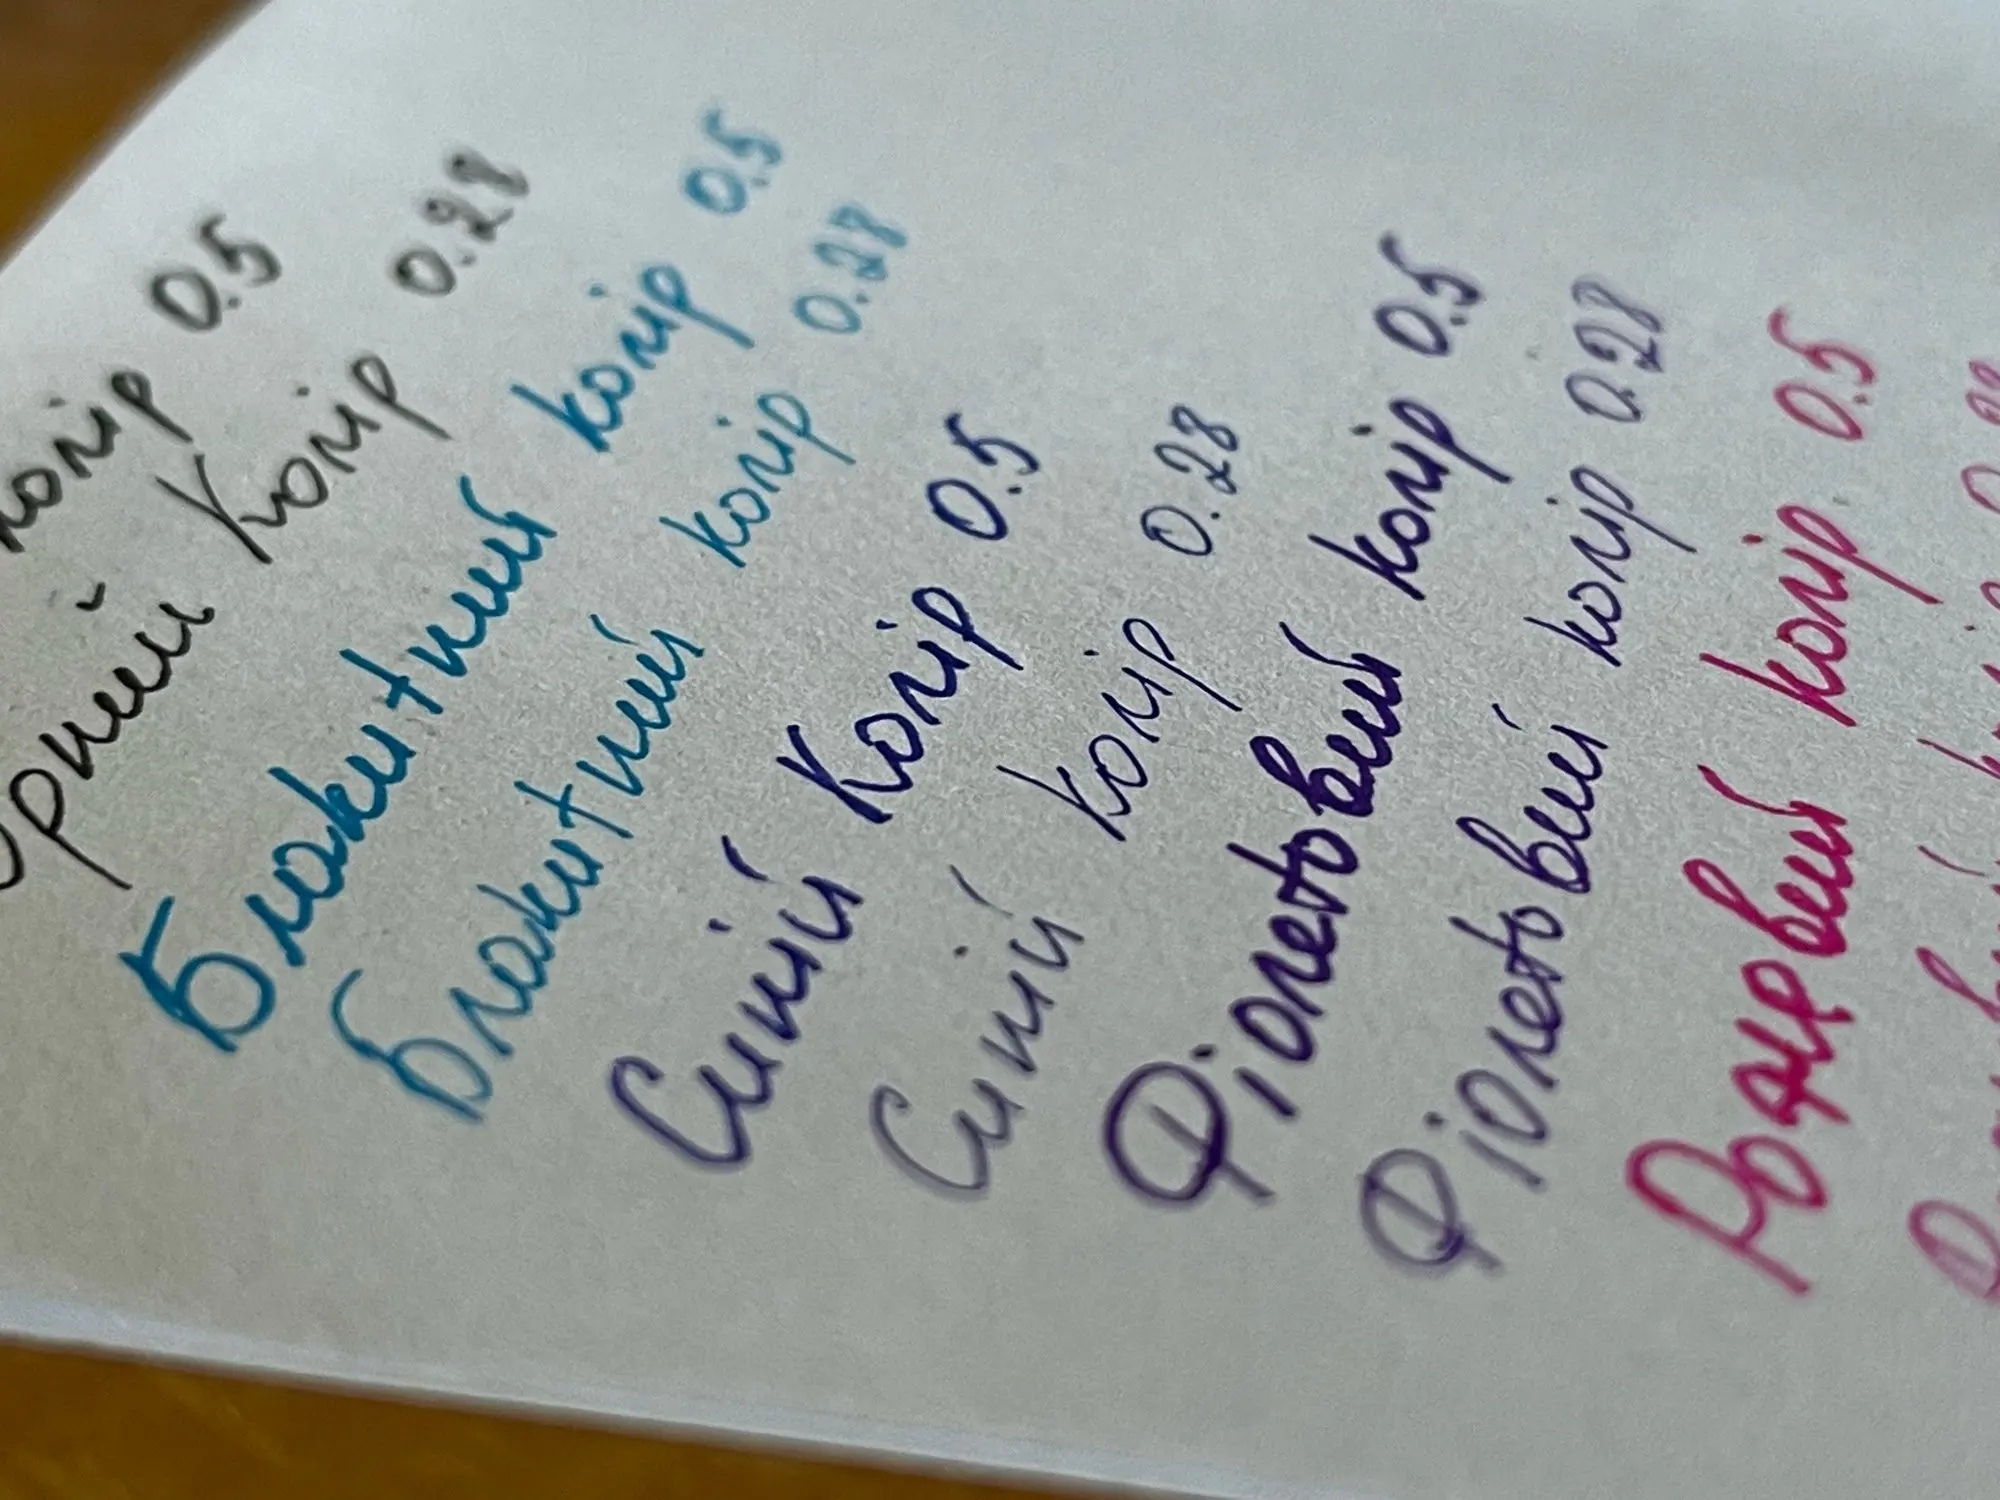 колір 0.5
рний Колір 0.28
Блакитний колір 0.5
Блакитний колір 0.28
Синій Колір 0.5
Синій колір 0.28
Фіолетовий колір 0.5
Фіолетовий колір 0.28
Рожевий колір 0.5